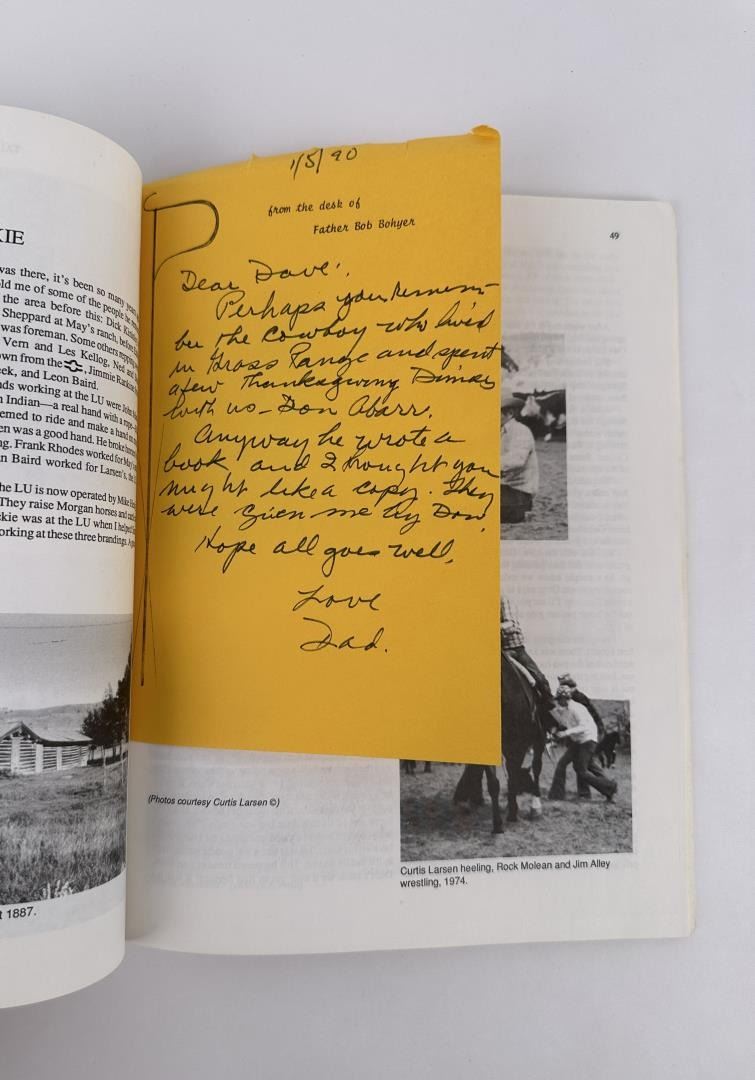 KIE
was there, it's been so many years
old me of some of the people he
the area before this: Dick
Sheppard at May's ranch, before
was foreman. Some others repping
Vern and Les Kellog, Ned and
own from the , Jimmie Rankin
eek, and Leon Baird.
nds working at the LU were John
n Indian—a real hand with a rope
emed to ride and make a hand
en was a good hand. He broke horses
ng. Frank Rhodes worked for May
n Baird worked for Larsen's, the
he LU is now operated by Mike
They raise Morgan horses and cattle
ckie was at the LU when I helped
orking at these three brandings.
t 1887.
1/5/90
from the desk of
Father Bob Bohyer
Dear Dave:
Perhaps you remem-
ber the cowboy who lived
in Grass Range and spent
a few Thanksgiving Dinners
with us - Don Abarr.
Anyway he wrote a
book and I thought you
might like a copy. They
were given me by Don.
Hope all goes well.
Love
Dad.
49
(Photos courtesy Curtis Larsen ©)
Curtis Larsen heeling, Rock Molean and Jim Alley
wrestling, 1974.